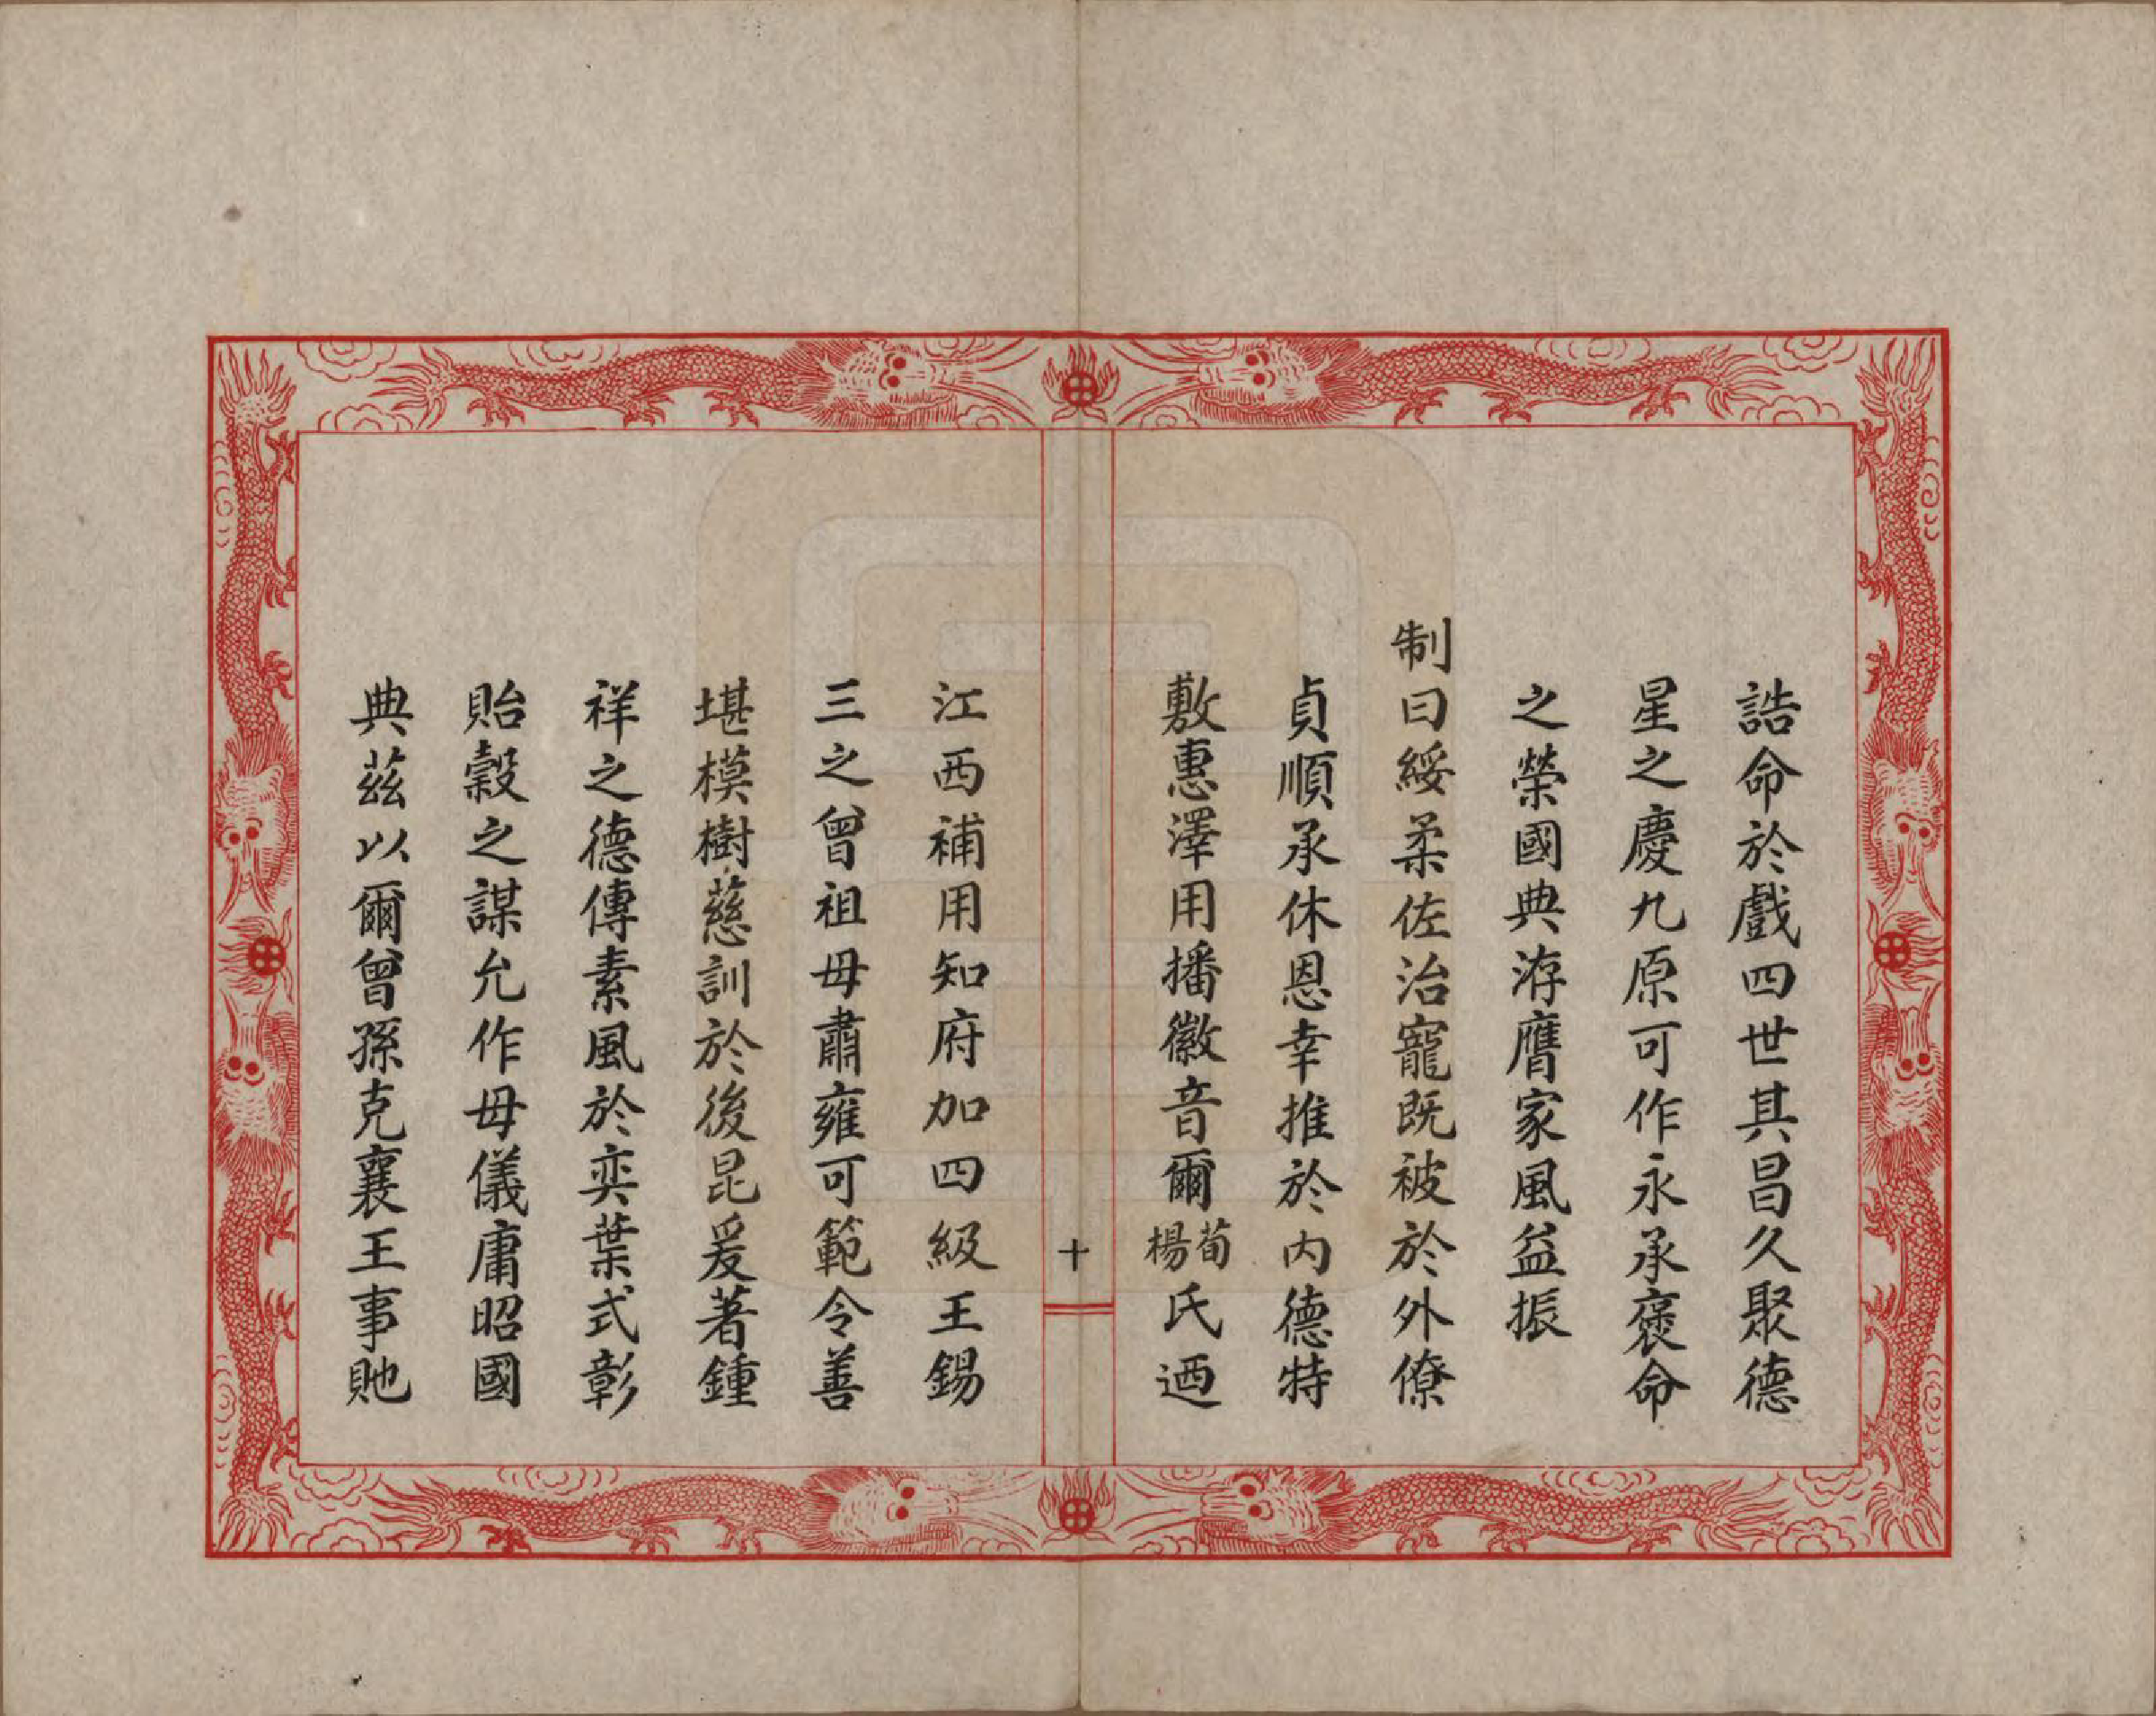 誥命於戲四世其昌久聚德
星之慶九原可作永承褒命
之榮國典洊膺家風益振
制曰綏柔佐治寵既被於外僚
貞順承休恩幸推於內德特
敷惠澤用播徽音爾荀楊氏迺
十
江西補用知府加四級王錫
三之曾祖母肅雍可範令善
堪模樹慈訓於後昆爰著鍾
祥之德傳素風於奕葉式彰
貽穀之謀允作母儀庸昭國
典茲以爾曾孫克襄王事貤